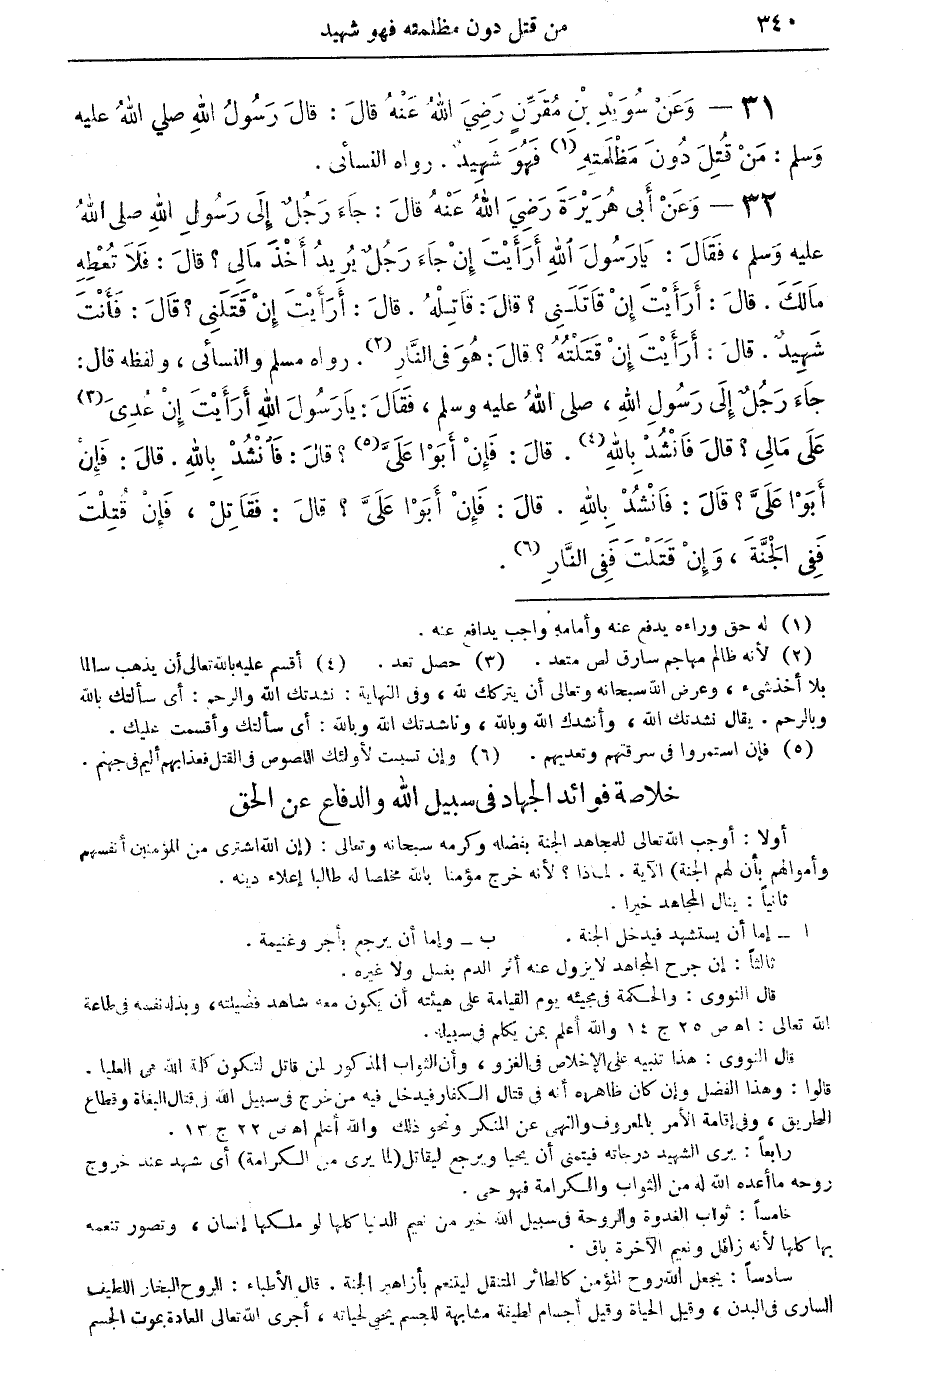 ٣٤٠ من قتل دون مظلمته فهو شهيد
٣١ — وَعَنْ سُوَيْدِ بْنِ مُقَرِّنٍ رَضِيَ اللهُ عَنْهُ قَالَ : قَالَ رَسُولُ اللهِ صلي اللهُ عليه
وَسلم : مَنْ قُتِلَ دُونَ مَظْلَمَتِهِ (١) فَهُوَ شَهِيدٌ . رواه النسائى .
٣٢ — وَعَنْ أَبى هُرَيْرَةَ رَضِيَ اللهُ عَنْهُ قالَ : جَاءَ رَجُلٌ إِلَى رَسُولِ اللهِ صلى اللهُ
عليه وَسلم ، فَقَالَ : يَارَسُولَ اللهِ أَرَأَيْتَ إِنْ جَاءَ رَجُلٌ يُرِيدُ أَخْذَ مَالِى ؟ قالَ : فَلَا تُعْطِهِ
مَالَكَ . قالَ : أَرَأَيْتَ إِنْ قَاتَلَنِى ؟ قالَ : قَاتِلْهُ . قالَ : أَرَأَيْتَ إِنْ قَتَلَنِى ؟ قَالَ : فَأَنْتَ
شَهِيدٌ . قالَ : أَرَأَيْتَ إِنْ قَتَلْتُهُ ؟ قالَ : هُوَ فى النَّارِ (٢) . رواه مسلم والنسائى ، ولفظه قال :
جاءَ رَجُلٌ إِلَى رَسُولِ اللهِ ، صلى اللهُ عليه وسلم ، فَقَالَ : يارَسُولَ اللهِ أَرَأَيْتَ إِنْ عُدِىَ (٣)
عَلَى مَالِى ؟ قالَ فَانْشُدْ بِاللهِ (٤) . قالَ : فَإِنْ أَبَوْا عَلَىَّ (٥) ؟ قالَ : فَانْشُدْ بِاللهِ . قالَ : فَإِنْ
أَبَوْا عَلَىَّ ؟ قَالَ : فَانْشُدْ بِاللهِ . قالَ : فَإِنْ أَبَوْا عَلَىَّ ؟ قالَ : فَقَاتِلْ ، فَإِنْ قُتِلْتَ
فَفِى الْجَنَّةِ ، وَإِنْ قَتَلْتَ فَفِى النَّارِ (٦) .
(١) له حق وراءه يدفع عنه وأمامه واجب يدافع عنه .
(٢) لأنه ظالم مهاجم سارق لص متعد . (٣) حصل تعد . (٤) أقسم عليه بالله تعالى أن يذهب سالما
بلا أخذ شىء ، وعرض الله سبحانه وتعالى أن يتركك لله ، وفى النهاية : نشدتك الله والرحم : أى سألتك بالله
وبالرحم . يقال نشدتك الله ، وأنشدك الله وبالله ، وناشدتك الله وبالله : أى سألتك وأقسمت عليك .
(٥) فإن استمروا فى سرقتهم وتعديهم . (٦) وإن تسببت لأولئك اللصوص فى القتل فعذابهم أليم فى جهنم .
خلاصة فوائد الجهاد فى سبيل الله والدفاع عن الحق
أولا : أوجب الله تعالى للمجاهد الجنة بفضله وكرمه سبحانه وتعالى : (إن الله اشترى من المؤمنين أنفسهم
وأموالهم بأن لهم الجنة) الآية . لماذا ؟ لأنه خرج مؤمنا بالله مخلصا له طالبا إعلاء دينه .
ثانياً : ينال المجاهد خيرا .
ا — إما أن يستشهد فيدخل الجنة . ب — وإما أن يرجع بأجر وغنيمة .
ثالثاً : إن جرح المجاهد لا يزول عنه أثر الدم بغسل ولا غيره .
قال النووى : والحكمة فى مجيئه يوم القيامة على هيئته أن يكون معه شاهد فضيلته ، وبذله نفسه فى طاعة
الله تعالى : اه ص ٢٥ ج ١٤ والله أعلم بمن يكلم فى سبيله .
قال النووى : هذا تنبيه على الإخلاص فى الغزو ، وأن الثواب المذكور لمن قاتل لتكون كلمة الله هى العليا .
قالوا : وهذا الفضل وإن كان ظاهره أنه فى قتال الكفار فيدخل فيه من خرج فى سبيل الله فى قتال البغاة وقطاع
الطريق ، وفى إقامة الأمر بالمعروف والنهى عن المنكر ونحو ذلك والله أعلم اه ص ٢٢ ج ١٣ .
رابعاً : يرى الشهيد درجاته فيتمنى أن يحيا ويرجع ليقاتل (لما يرى من الكرامة) أى شهد عند خروج
روحه ما أعده الله له من الثواب والكرامة فهو حى .
خامساً : ثواب الغدوة والروحة فى سبيل الله خير من نعيم الدنيا كلها لو ملكها إنسان ، وتصور تنعمه
بها كلها لأنه زائل ونعيم الآخرة باق .
سادساً : يجعل الله روح المؤمن كالطائر المتنقل ليتنعم بأزاهير الجنة . قال الأطباء : الروح البخار اللطيف
السارى فى البدن ، وقيل الحياة وقيل أجسام لطيفة مشابهة للجسم يحيى لحياته ، أجرى الله تعالى العادة بموت الجسم